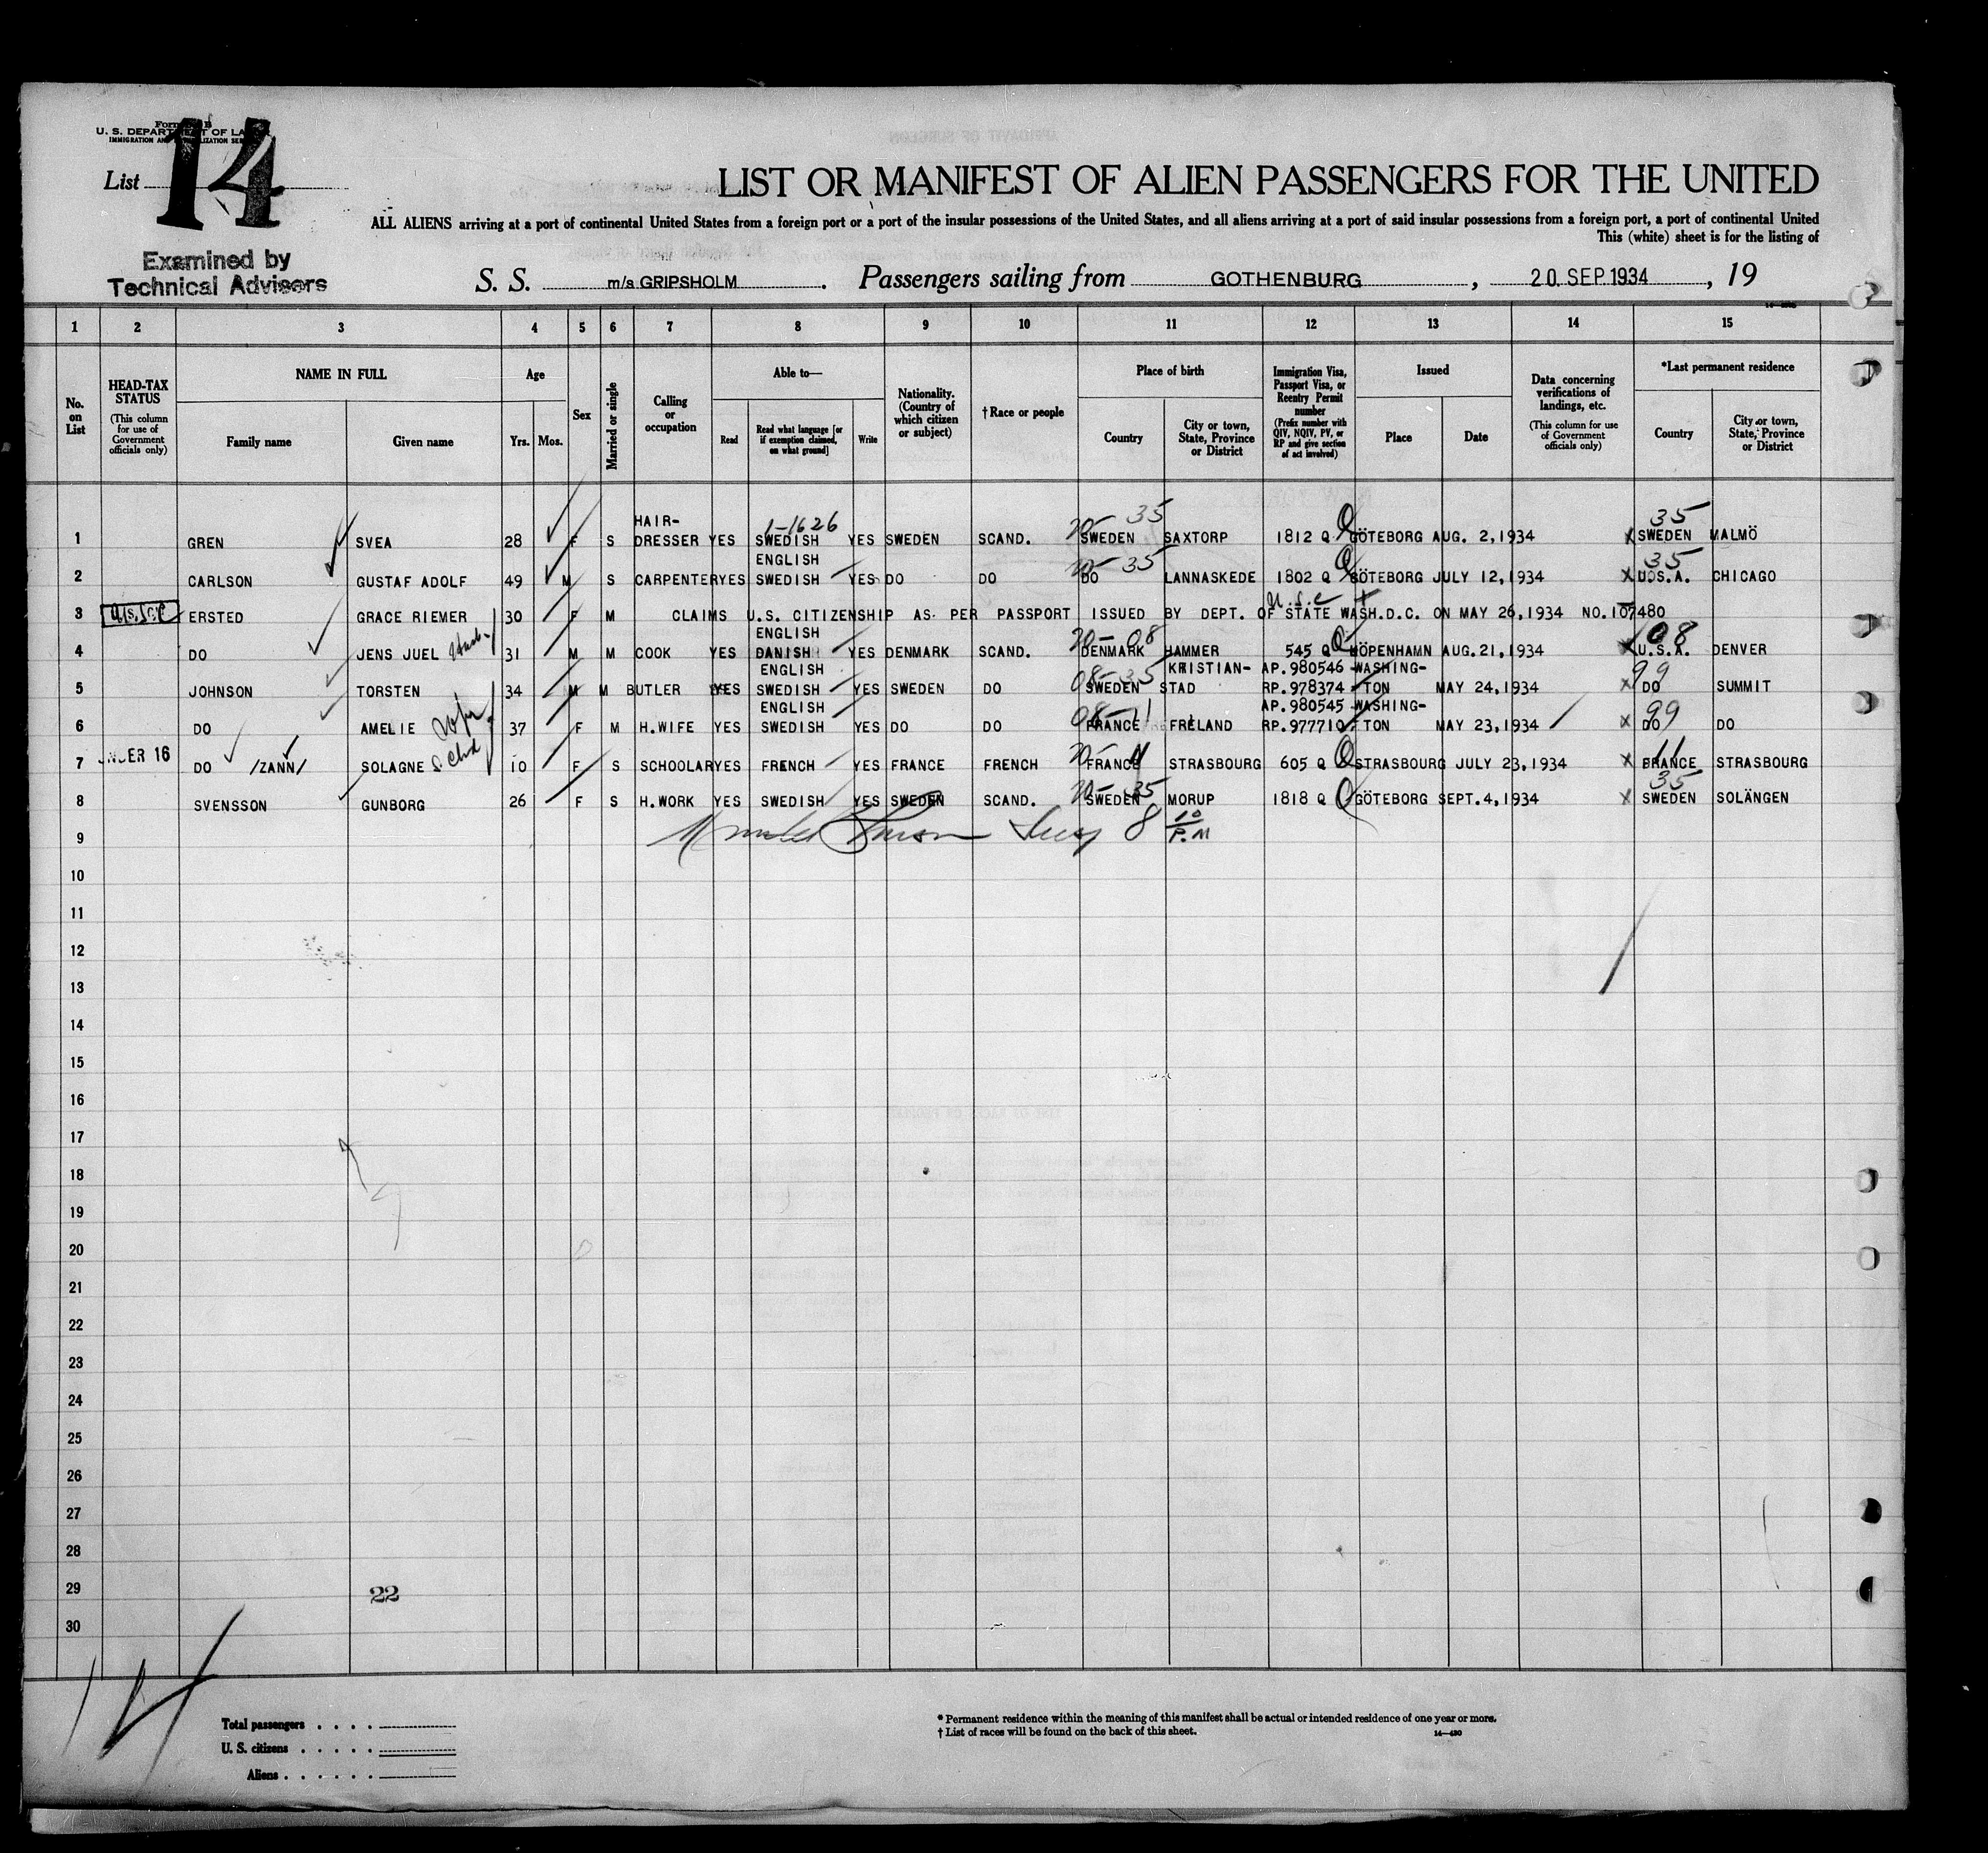 Form
U. S. DEPARTMENT OF LA
IMMIGRATION AND NATURALIZATION SE
List 14
LIST OR MANIFEST OF ALIEN PASSENGERS FOR THE UNITED
ALL ALIENS arriving at a port of continental United States from a foreign port or a port of the insular possessions of the United States, and all aliens arriving at a port of said insular possessions from a foreign port, a port of continental United
This (white) sheet is for the listing of
Examined by
Technical Advisors
S. S. m/s GRIPSHOLM. Passengers sailing from GOTHENBURG, 20. SEP. 1934, 19
1 2 3 4 5 6 7 8 9 10 11 12 13 14 15
No. on List
HEAD-TAX STATUS (This column for use of Government officials only)
NAME IN FULL
Family name Given name
Age
Yrs. Mos.
Sex
Married or single
Calling or occupation
Able to—
Read
Read what language [or if exemption claimed, on what ground]
Write
Nationality. (Country of which citizen or subject)
† Race or people
Place of birth
Country
City or town, State, Province or District
Immigration Visa, Passport Visa, or Reentry Permit number (Prefix number with QIV, NQIV, PV, or RP and give section of act involved)
Issued
Place Date
Data concerning verifications of landings, etc. (This column for use of Government officials only)
*Last permanent residence
Country
City or town, State, Province or District
HAIR- 1-1626 35 35
1 GREN SVEA 28 F S DRESSER YES SWEDISH YES SWEDEN SCAND. SWEDEN SAXTORP 1812 Q GÖTEBORG AUG. 2,1934 X SWEDEN MALMÖ
ENGLISH 35 35
2 CARLSON GUSTAF ADOLF 49 M S CARPENTER YES SWEDISH YES DO DO DO LANNASKEDE 1802 Q GÖTEBORG JULY 12,1934 X U.S.A. CHICAGO
U.S.C
3 ERSTED GRACE RIEMER 30 F M CLAIMS U.S. CITIZENSHIP AS PER PASSPORT ISSUED BY DEPT. OF STATE WASH.D.C. ON MAY 26,1934 NO.107480
ENGLISH 20-08 08
4 DO JENS JUEL Husb. 31 M M COOK YES DANISH YES DENMARK SCAND. DENMARK HAMMER 545 Q KÖPENHAMN AUG.21,1934 X U.S.A. DENVER
ENGLISH 08-35 KRISTIAN- AP.980546 WASHING- 99
5 JOHNSON TORSTEN 34 M M BUTLER YES SWEDISH YES SWEDEN DO SWEDEN STAD RP.978374 TON MAY 24,1934 X DO SUMMIT
ENGLISH 08-11 AP.980545 WASHING- 99
6 DO AMELIE 37 F M H.WIFE YES SWEDISH YES DO DO FRANCE FRELAND RP.977710 TON MAY 23,1934 X DO DO
UNDER 16 11 11
7 DO /ZANN/ SOLAGNE 10 F S SCHOOLAR YES FRENCH YES FRANCE FRENCH FRANCE STRASBOURG 605 Q STRASBOURG JULY 23,1934 X FRANCE STRASBOURG
35 35
8 SVENSSON GUNBORG 26 F S H.WORK YES SWEDISH YES SWEDEN SCAND. SWEDEN MORUP 1818 Q GÖTEBORG SEPT.4,1934 X SWEDEN SOLÄNGEN
9 8 10 P.M
10
11
12
13
14
15
16
17
18
19
20
21
22
23
24
25
26
27
28
29 22
30
14
Total passengers
U. S. citizens
Aliens
* Permanent residence within the meaning of this manifest shall be actual or intended residence of one year or more.
† List of races will be found on the back of this sheet.
14—430